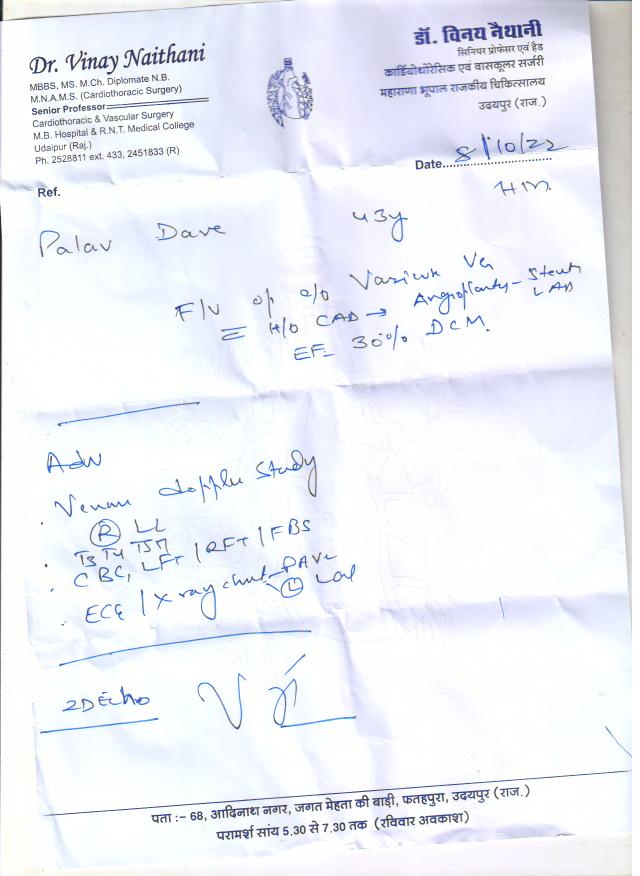 Dr. Vinay Naithani
MBBS, MS. M.Ch. Diplomate N.B.
M.N.A.M.S. (Cardiothoracic Surgery)
Senior Professor
Cardiothoracic & Vascular Surgery
M.B. Hospital & R.N.T. Medical College
Udaipur (Raj.)
Ph. 2528811 ext. 433, 2451833 (R)
डॉ. विनय नैथानी
सिनियर प्रोफेसर एवं हैड
कार्डियोथोरेसिक एवं वासकूलर सर्जरी
महाराणा भूपाल राजकीय चिकित्सालय
उदयपुर (राज.)
Date 8/10/22
Ref.
Palav Dave 43y
F/U
H/O CAD → Angioplasty - Stent
LAD
EF 30% DCM
Adv
Doppler Study
R LL
T3 T4 TSH
CBC, LFT / RFT / FBS
ECG / X ray chest - PA View
L Lat
2D Echo
पता :- 68, आदिनाथ नगर, जगत मेहता की बाड़ी, फतहपुरा, उदयपुर (राज.)
परामर्श सांय 5.30 से 7.30 तक (रविवार अवकाश)